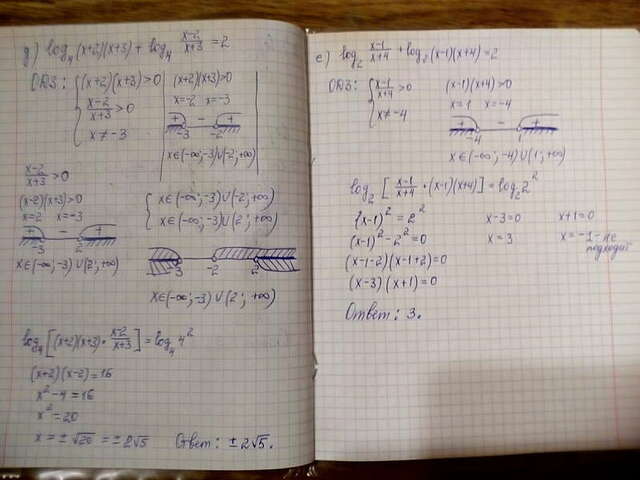 д) log₄(x+2)(x+3) + log₄ (x-2)/(x+3) = 2
ОДЗ: { (x+2)(x+3)>0
(x-2)/(x+3) > 0
x ≠ -3
(x+2)(x+3)>0
x=-2 x=-3
+ - +
-3 -2
x∈(-∞;-3)∪(-2;+∞)
(x-2)/(x+3) > 0
(x-2)(x+3)>0
x=2 x=-3
+ - +
-3 2
x∈(-∞;-3)∪(2;+∞)
{ x∈(-∞;-3)∪(-2;+∞)
x∈(-∞;-3)∪(2;+∞)
-3 -2 2
x∈(-∞;-3)∪(2;+∞)
log₄[(x+2)(x+3)·(x-2)/(x+3)] = log₄ 4²
(x+2)(x-2)=16
x²-4=16
x²=20
x=±√20=±2√5
Ответ: ±2√5.
е) log₂ (x-1)/(x+4) + log₂(x-1)(x+4)=2
ОДЗ: { (x-1)/(x+4) >0
x≠-4
(x-1)(x+4)>0
x=1 x=-4
+ - +
-4 1
x∈(-∞;-4)∪(1;+∞)
log₂[(x-1)/(x+4)·(x-1)(x+4)]=log₂2²
(x-1)²=2²
(x-1)²-2²=0
(x-1-2)(x-1+2)=0
(x-3)(x+1)=0
x-3=0 x+1=0
x=3 x=-1-не
подходит
Ответ: 3.